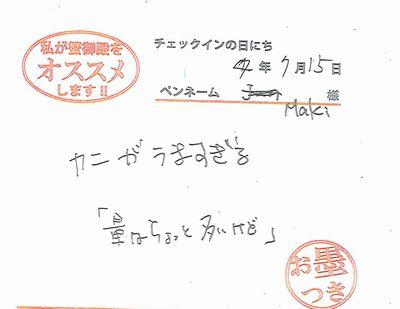 私が蟹御殿を
オススメ
します!!
チェックインの日にち
年 7月15日
ペンネーム Maki 様
カニがうますぎる
「量はちょっと多いけど」
お墨
つき